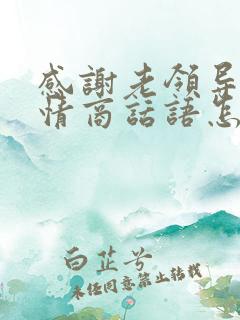 感謝老領导
情商話語怎
白芷兮
未经同意禁止转载